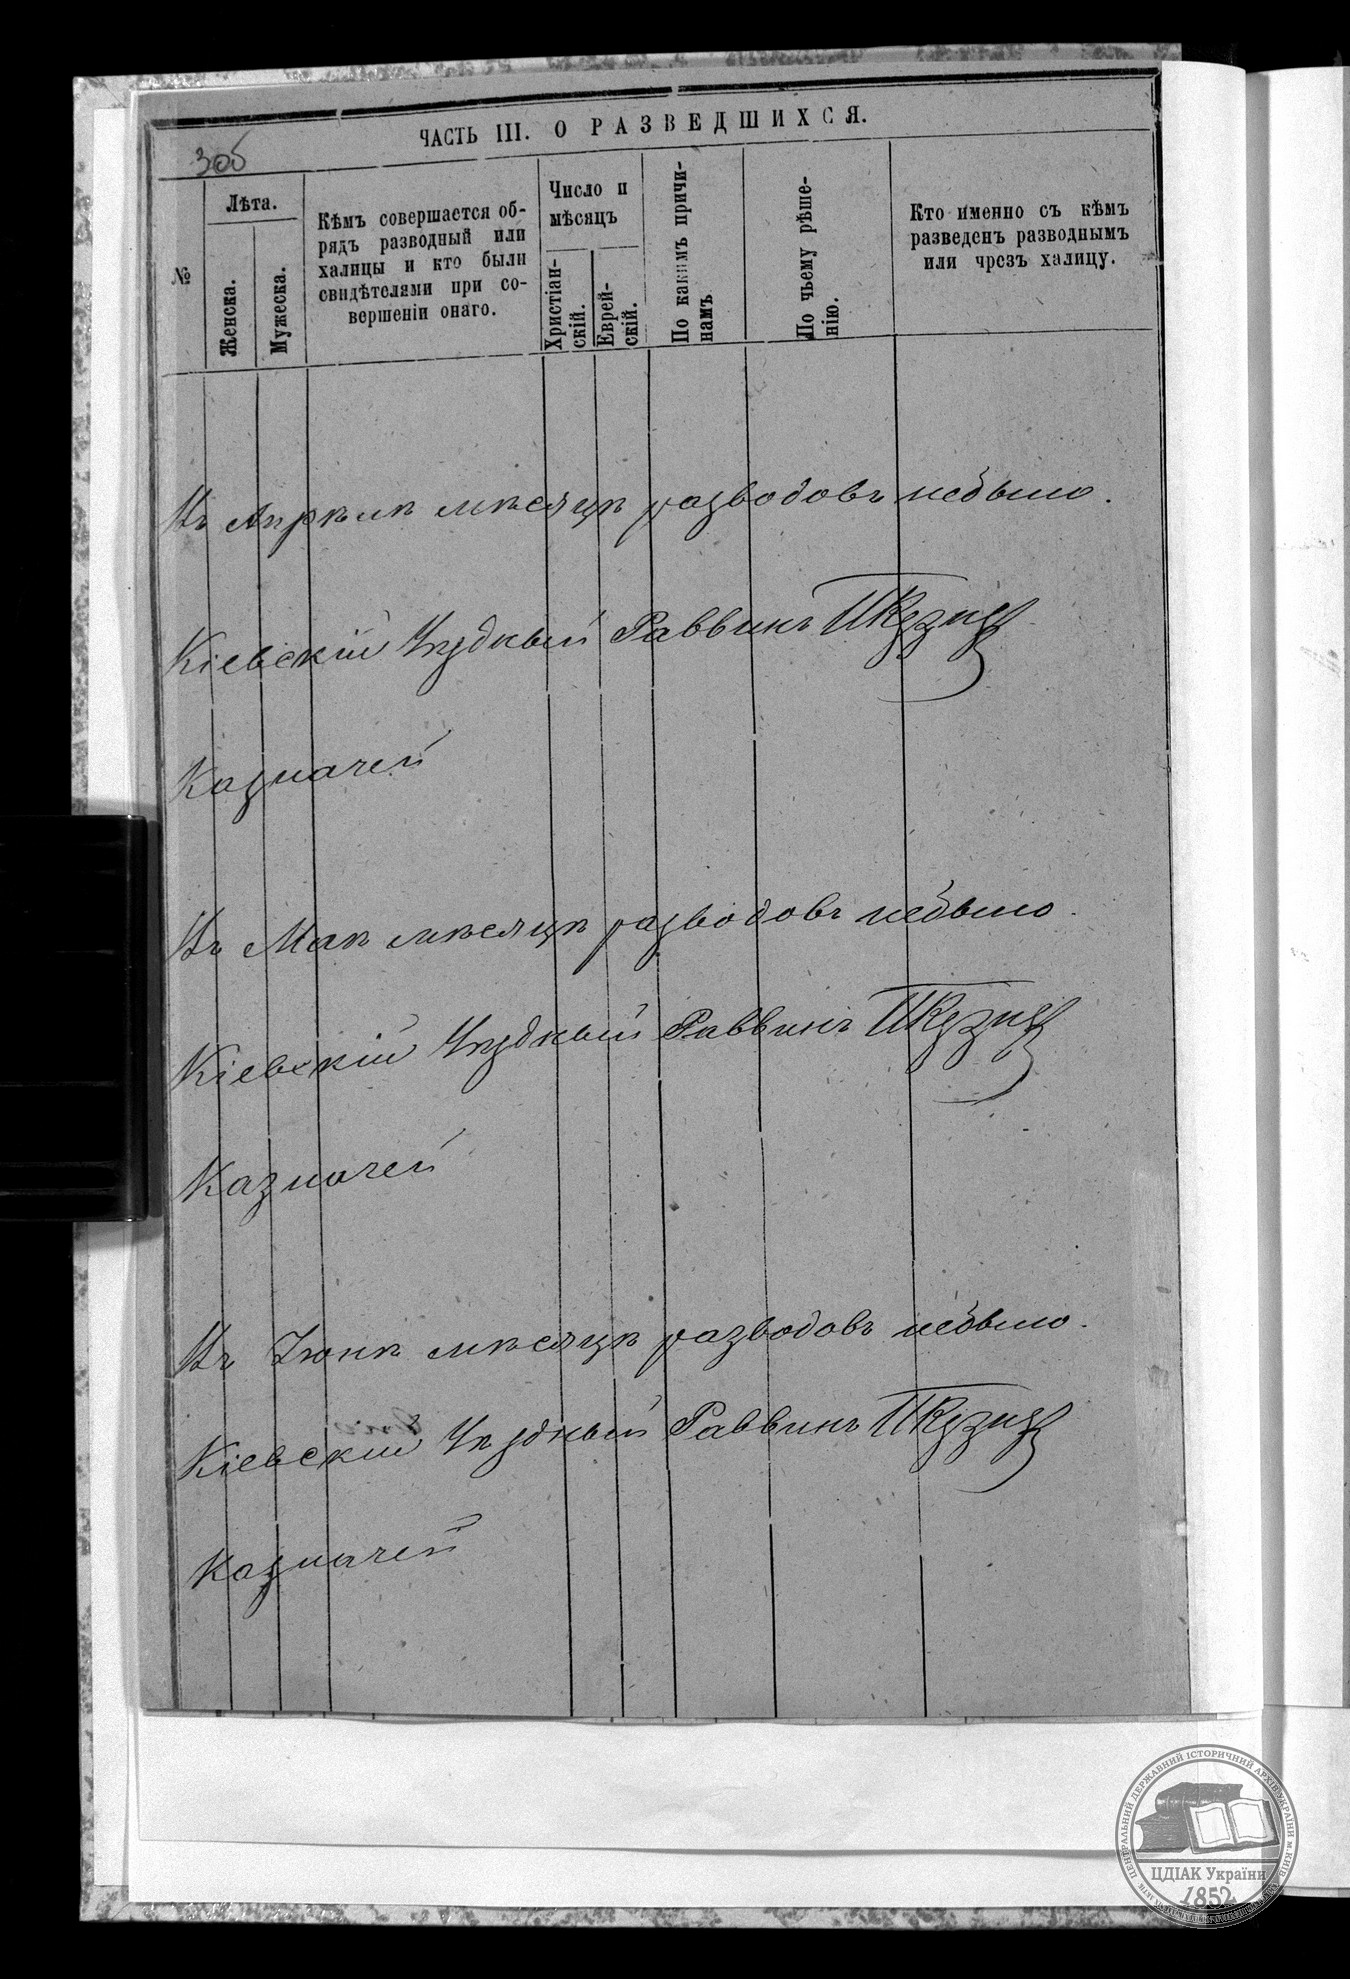 ЧАСТЬ III. О РАЗВЕДШИХСЯ.
305
№
Лѣта.
Женска.
Мужеска.
Кѣмъ совершается об-
рядъ разводный или
халицы и кто были
свидѣтелями при со-
вершеніи онаго.
Число и
мѣсяцъ
Христіан-
скій.
Еврей-
скій.
По какимъ причи-
намъ
По чьему рѣше-
нію.
Кто именно съ кѣмъ
разведенъ разводнымъ
или чрезъ халицу.
Въ Апрѣлѣ мѣсяцѣ разводовъ небыло.
Кіевскій Уѣздный Раввинъ
Казначей
Въ Маѣ мѣсяцѣ разводовъ небыло.
Кіевскій Уѣздный Раввинъ
Казначей
Въ Іюнѣ мѣсяцѣ разводовъ небыло.
Кіевскій Уѣздный Раввинъ
Казначей
ЦЕНТРАЛЬНИЙ ДЕРЖАВНИЙ ІСТОРИЧНИЙ АРХІВ УКРАЇНИ м.КИЇВ
ЦДІАК України
1852